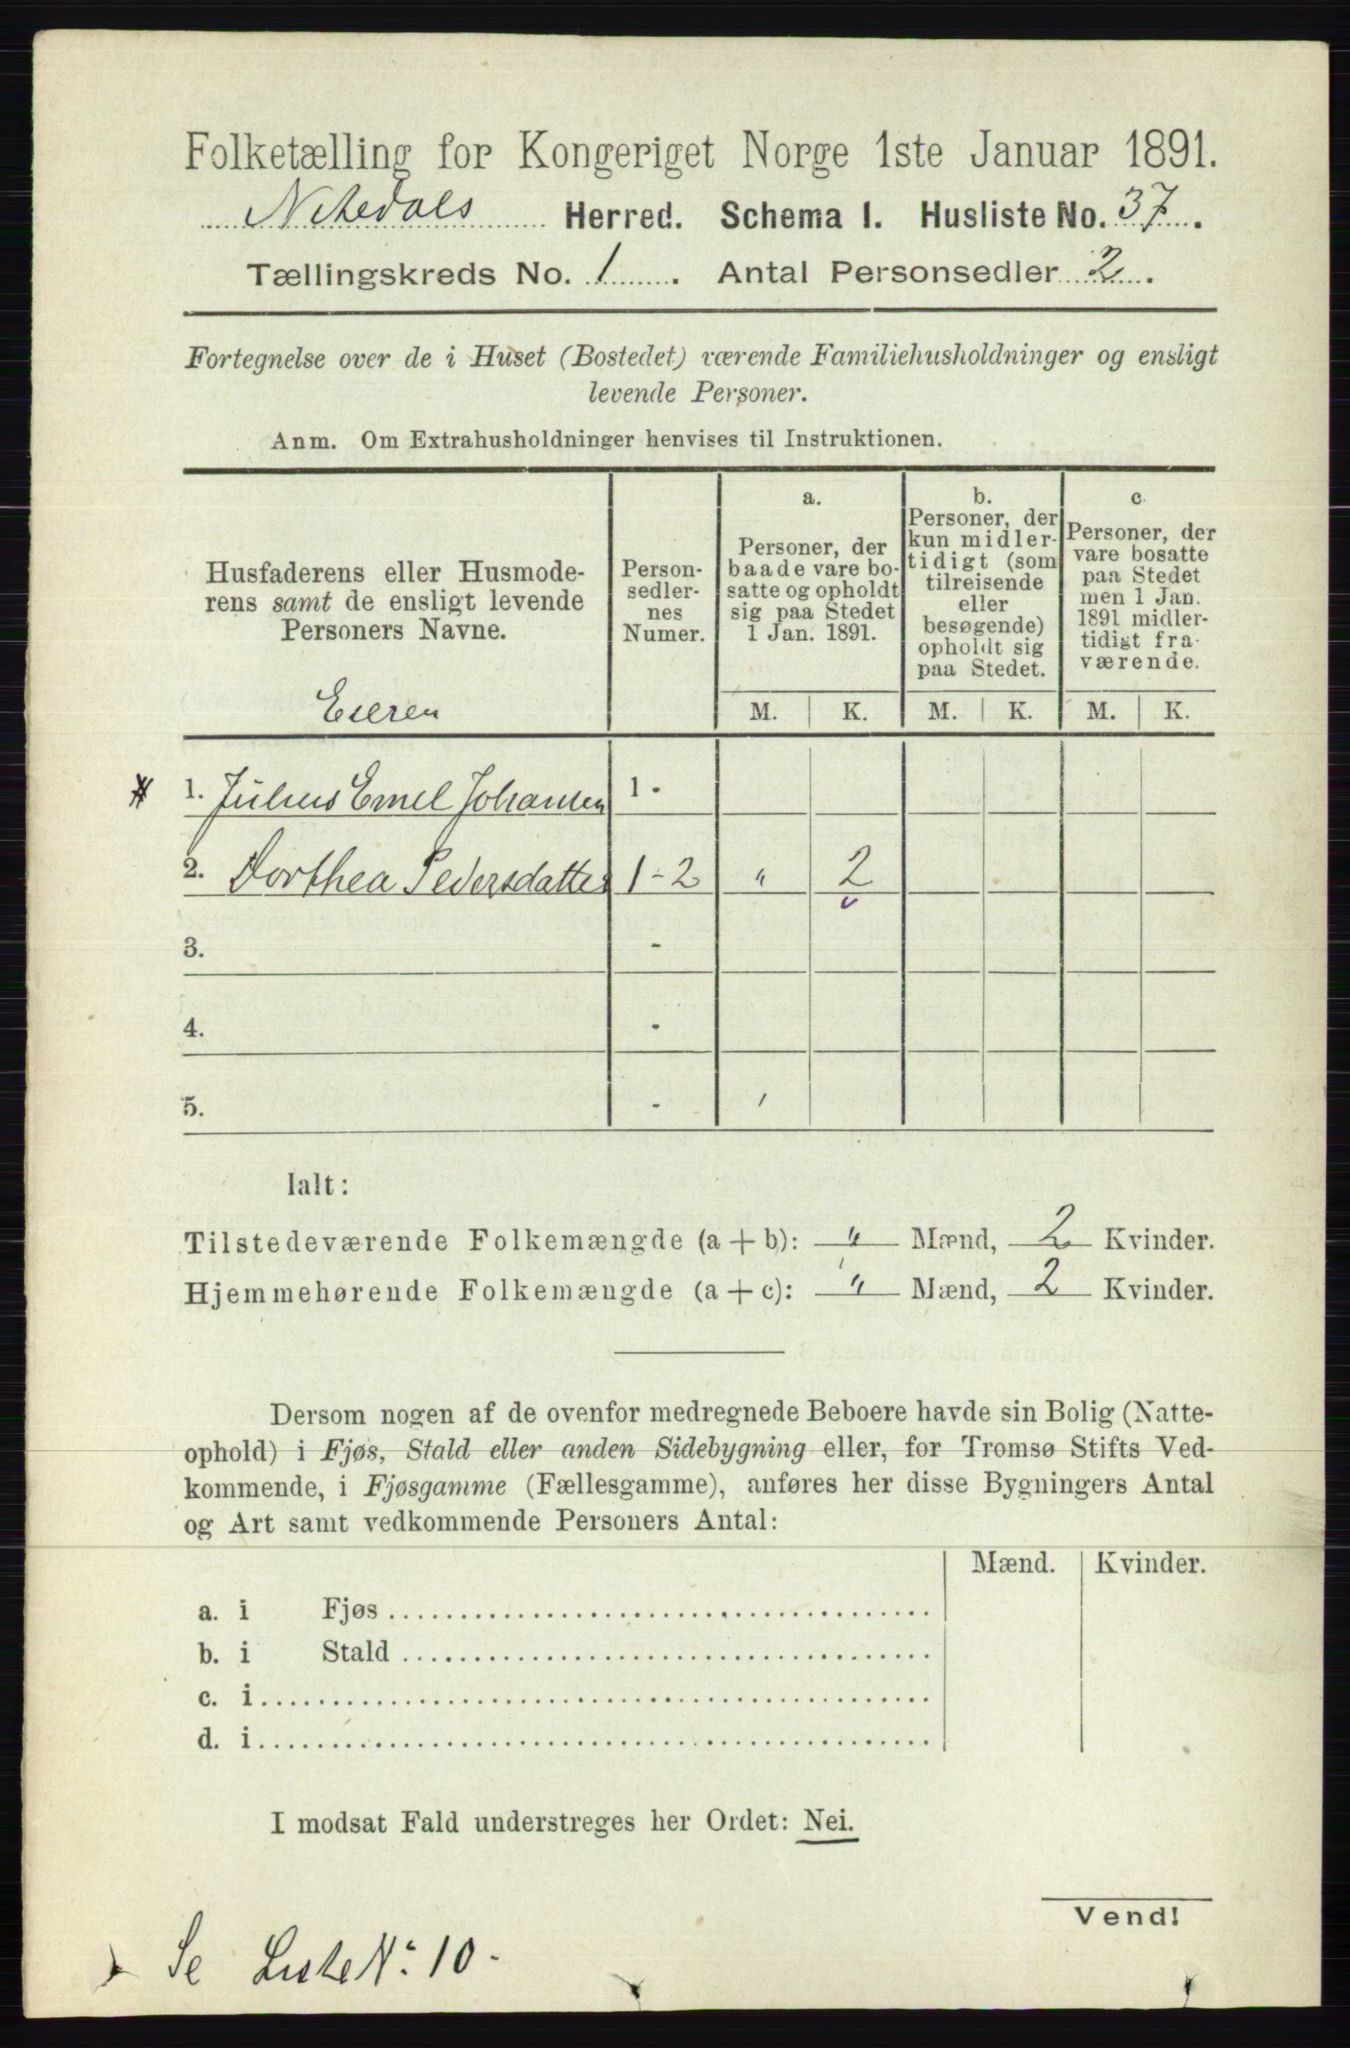 Folketælling for Kongeriget Norge 1ste Januar 1891.
Nitedals Herred. Schema 1. Husliste No. 37.
Tællingskreds No. 1. Antal Personsedler 2.
Fortegnelse over de i Huset (Bostedet) værende Familiehusholdninger og ensligt
levende Personer.
Anm. Om Extrahusholdninger henvises til Instruktionen.
Husfaderens eller Husmode-
rens samt de ensligt levende
Personers Navne.
Eieren
Person-
sedler-
nes
Numer.
a.
Personer, der
baade vare bo-
satte og opholdt
sig paa Stedet
1 Jan. 1891.
b.
Personer, der
kun midler-
tidigt (som
tilreisende
eller
besøgende)
opholdt sig
paa Stedet.
c.
Personer, der
vare bosatte
paa Stedet
men 1 Jan.
1891 midler-
tidigt fra-
værende.
M. K. M. K. M. K.
1. Julius Emil Johansen 1 -
2. Dorthea Pedersdatter 1 - 2 " 2
3. -
4. -
5. -
Ialt:
Tilstedeværende Folkemængde (a + b): " Mænd, 2 Kvinder.
Hjemmehørende Folkemængde (a + c): " Mænd, 2 Kvinder.
Dersom nogen af de ovenfor medregnede Beboere havde sin Bolig (Natte-
ophold) i Fjøs, Stald eller anden Sidebygning eller, for Tromsø Stifts Ved-
kommende, i Fjøsgamme (Fællesgamme), anføres her disse Bygningers Antal
og Art samt vedkommende Personers Antal:
Mænd. Kvinder.
a. i Fjøs
b. i Stald
c. i
d. i
I modsat Fald understreges her Ordet: Nei.
Vend!
Se Liste No. 10 -